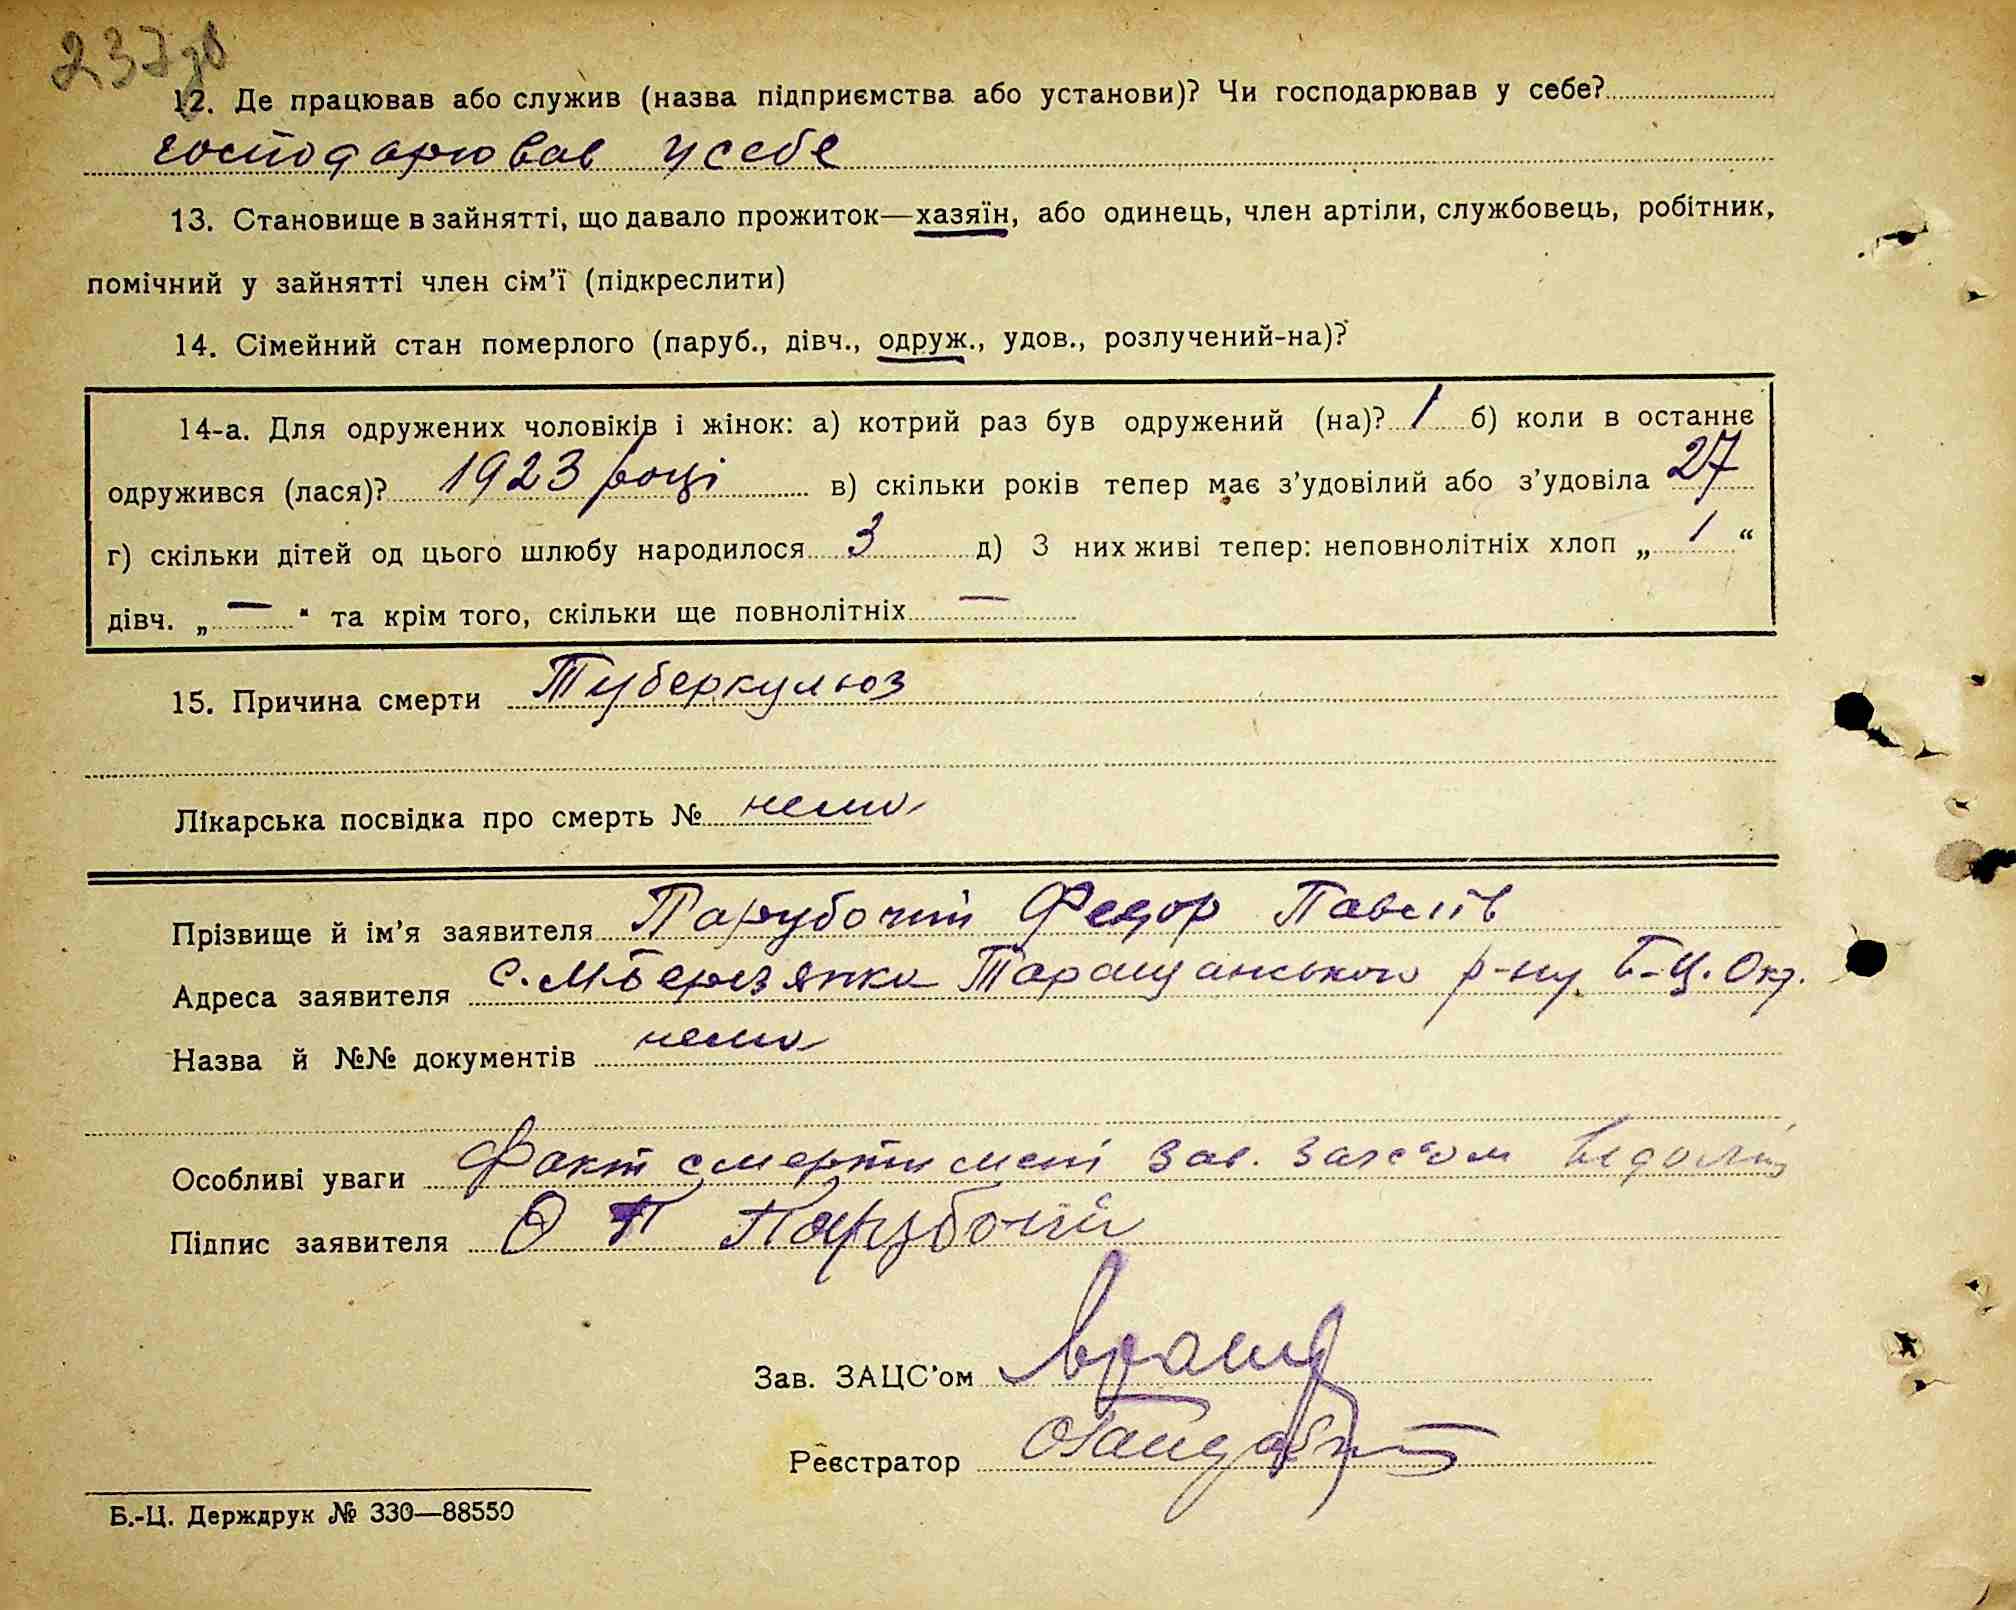 237зв
12. Де працював або служив (назва підприємства або установи)? Чи господарював у себе?
господарював у себе
13. Становище в зайнятті, що давало прожиток—хазяїн, або одинець, член артіли, службовець, робітник,
помічний у зайнятті член сім'ї (підкреслити)
14. Сімейний стан померлого (паруб., дівч., одруж., удов., розлучений-на)?
14-а. Для одружених чоловіків і жінок: а) котрий раз був одружений (на)? 1 б) коли в останнє
одружився (лася)? 1923 році в) скільки років тепер має з'удовілий або з'удовіла 27
г) скільки дітей од цього шлюбу народилося 3 д) З них живі тепер: неповнолітніх хлоп „ 1 “
дівч. „ — “ та крім того, скільки ще повнолітніх —
15. Причина смерти Туберкульоз
Лікарська посвідка про смерть № нема
Прізвище й ім'я заявителя Парубочий Федор Павлів
Адреса заявителя с. М-Березянка Таращанського р-ну Б-Ц. Окр.
Назва й №№ документів нема
Особливі уваги Факт смерти мені зав. загсом
Підпис заявителя Ф П Парубочий
Зав. ЗАЦС'ом
Реєстратор
Б.-Ц. Держдрук № 330—88550